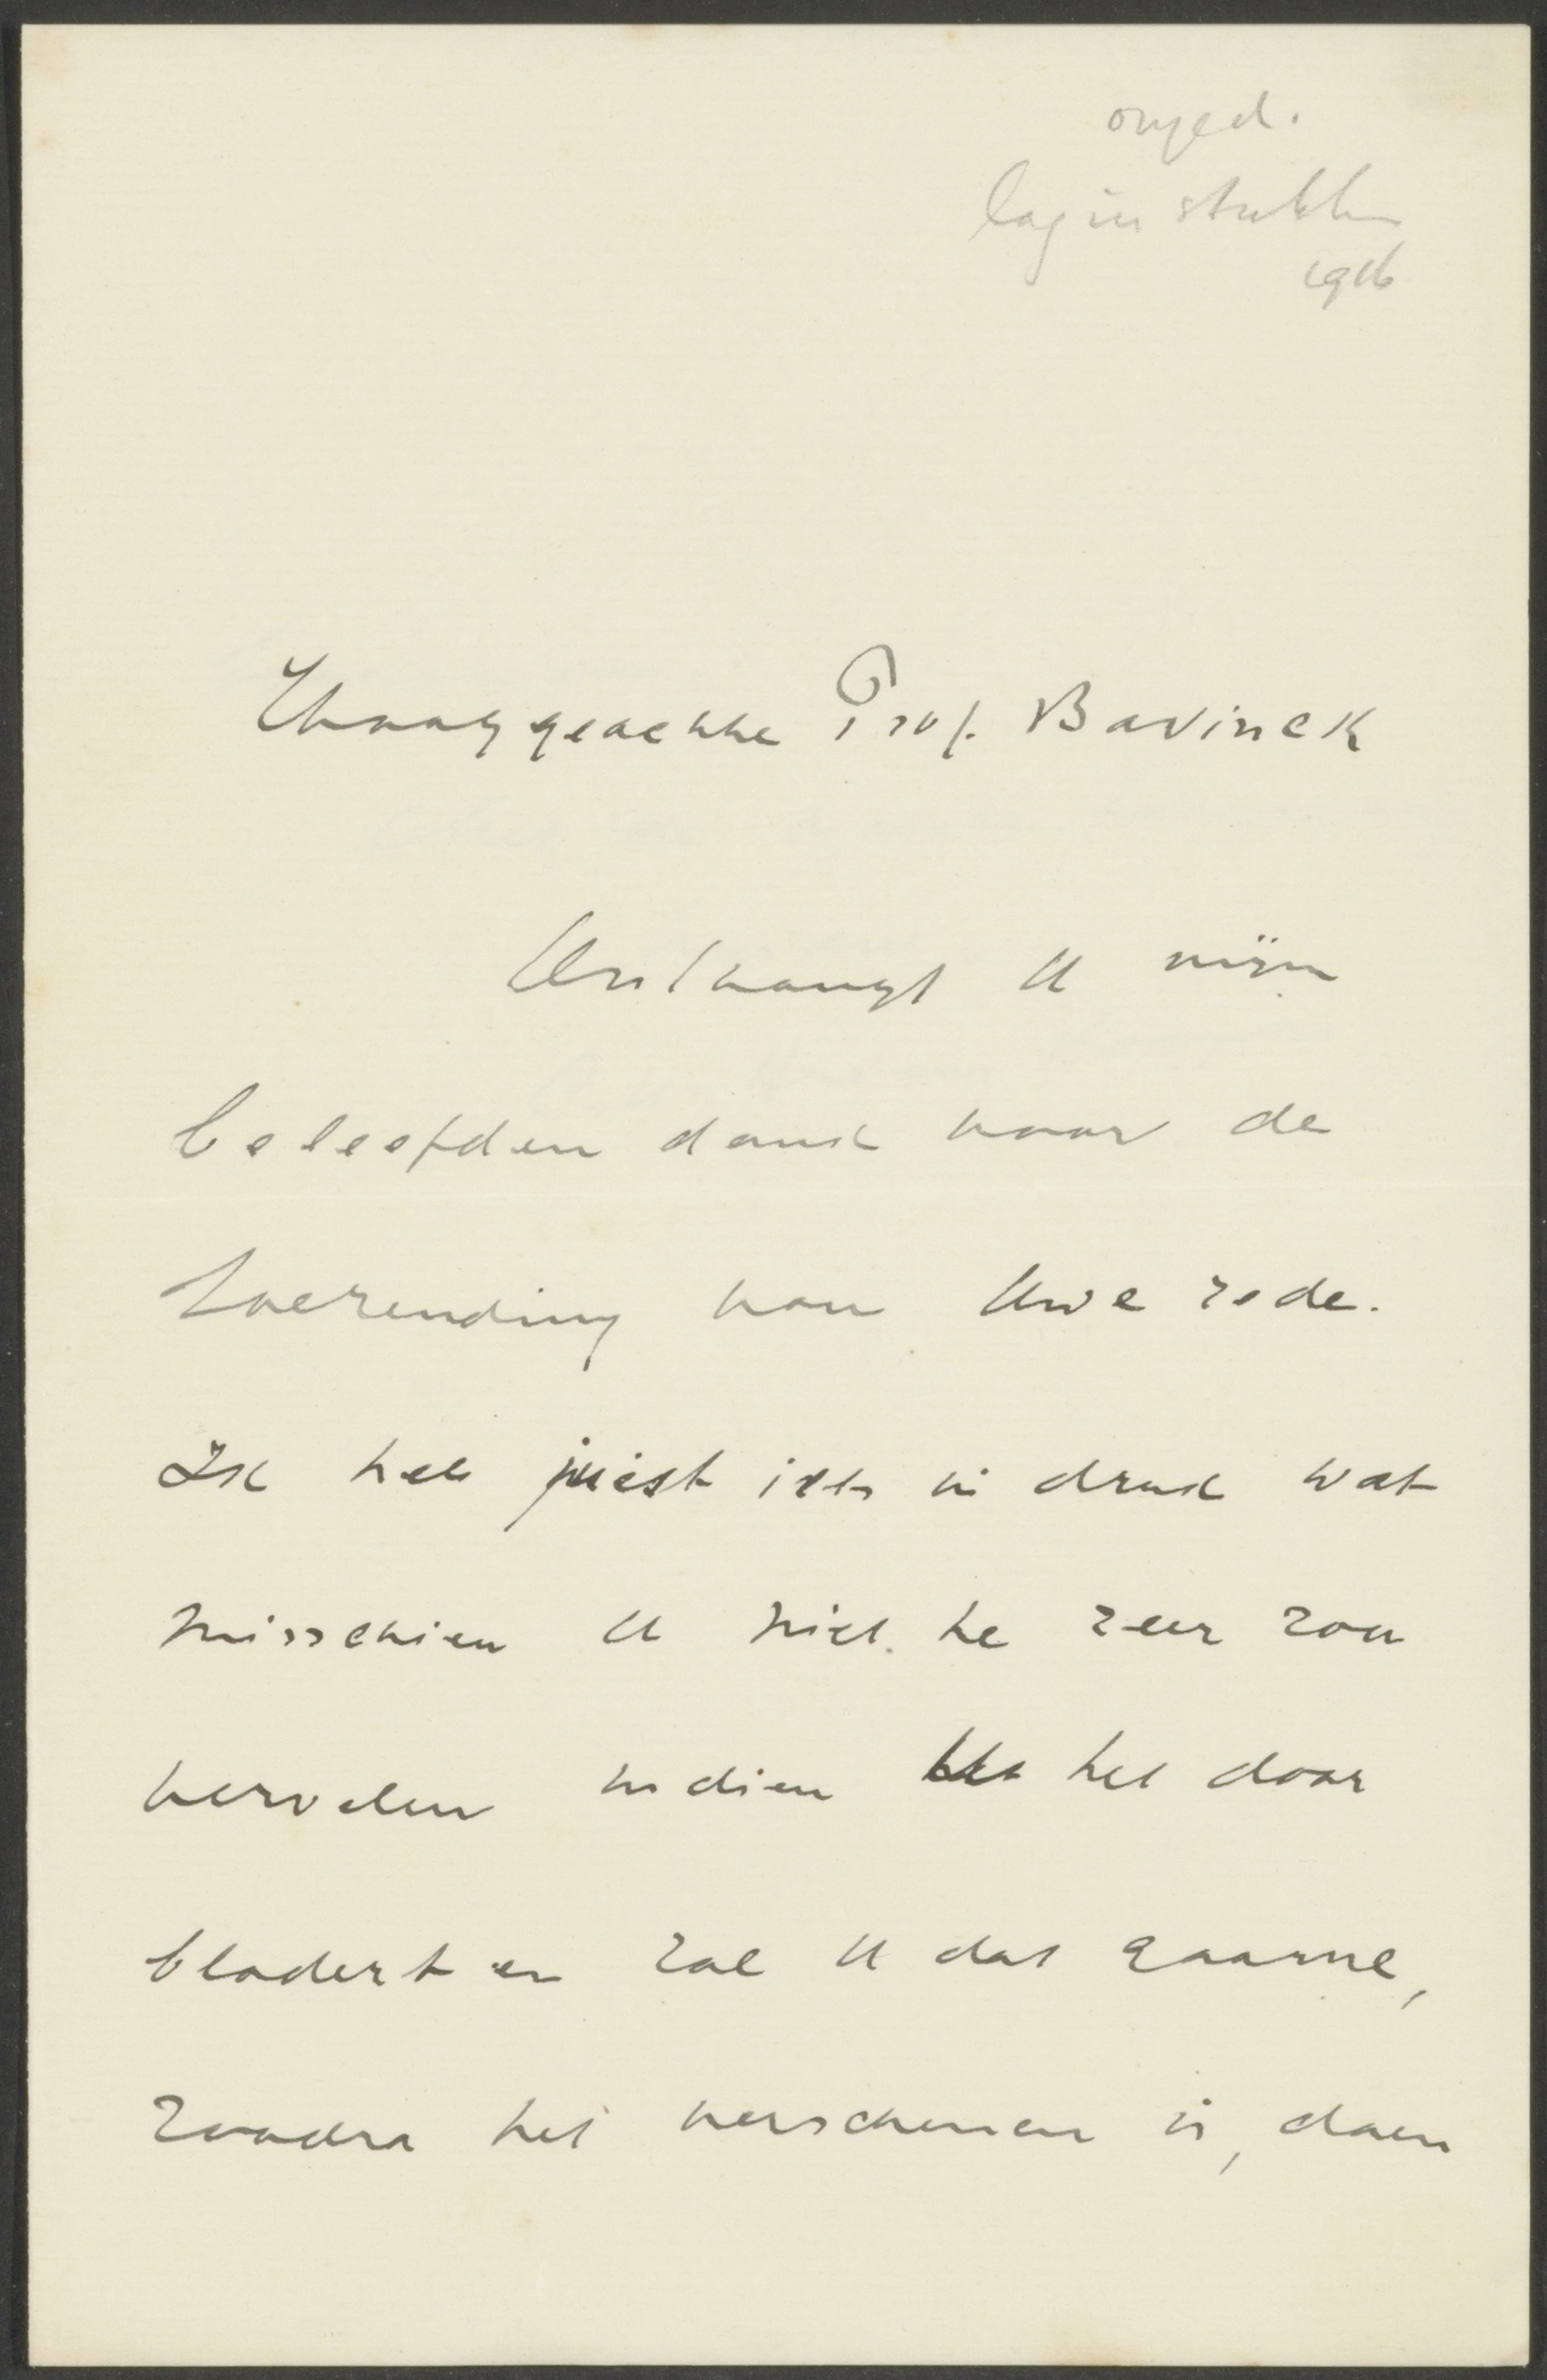 onged.
lag in stukken
1916
Hooggeachte Prof. Bavinck
Ontvangt U mijn
beleefden dank voor de
toezending van Uwe rede.
Ik heb juist iets in druk wat
misschien U niet te zeer zou
vervelen indien U het door
bladert en zal U dat gaarne,
zoodra het verschenen is, doen